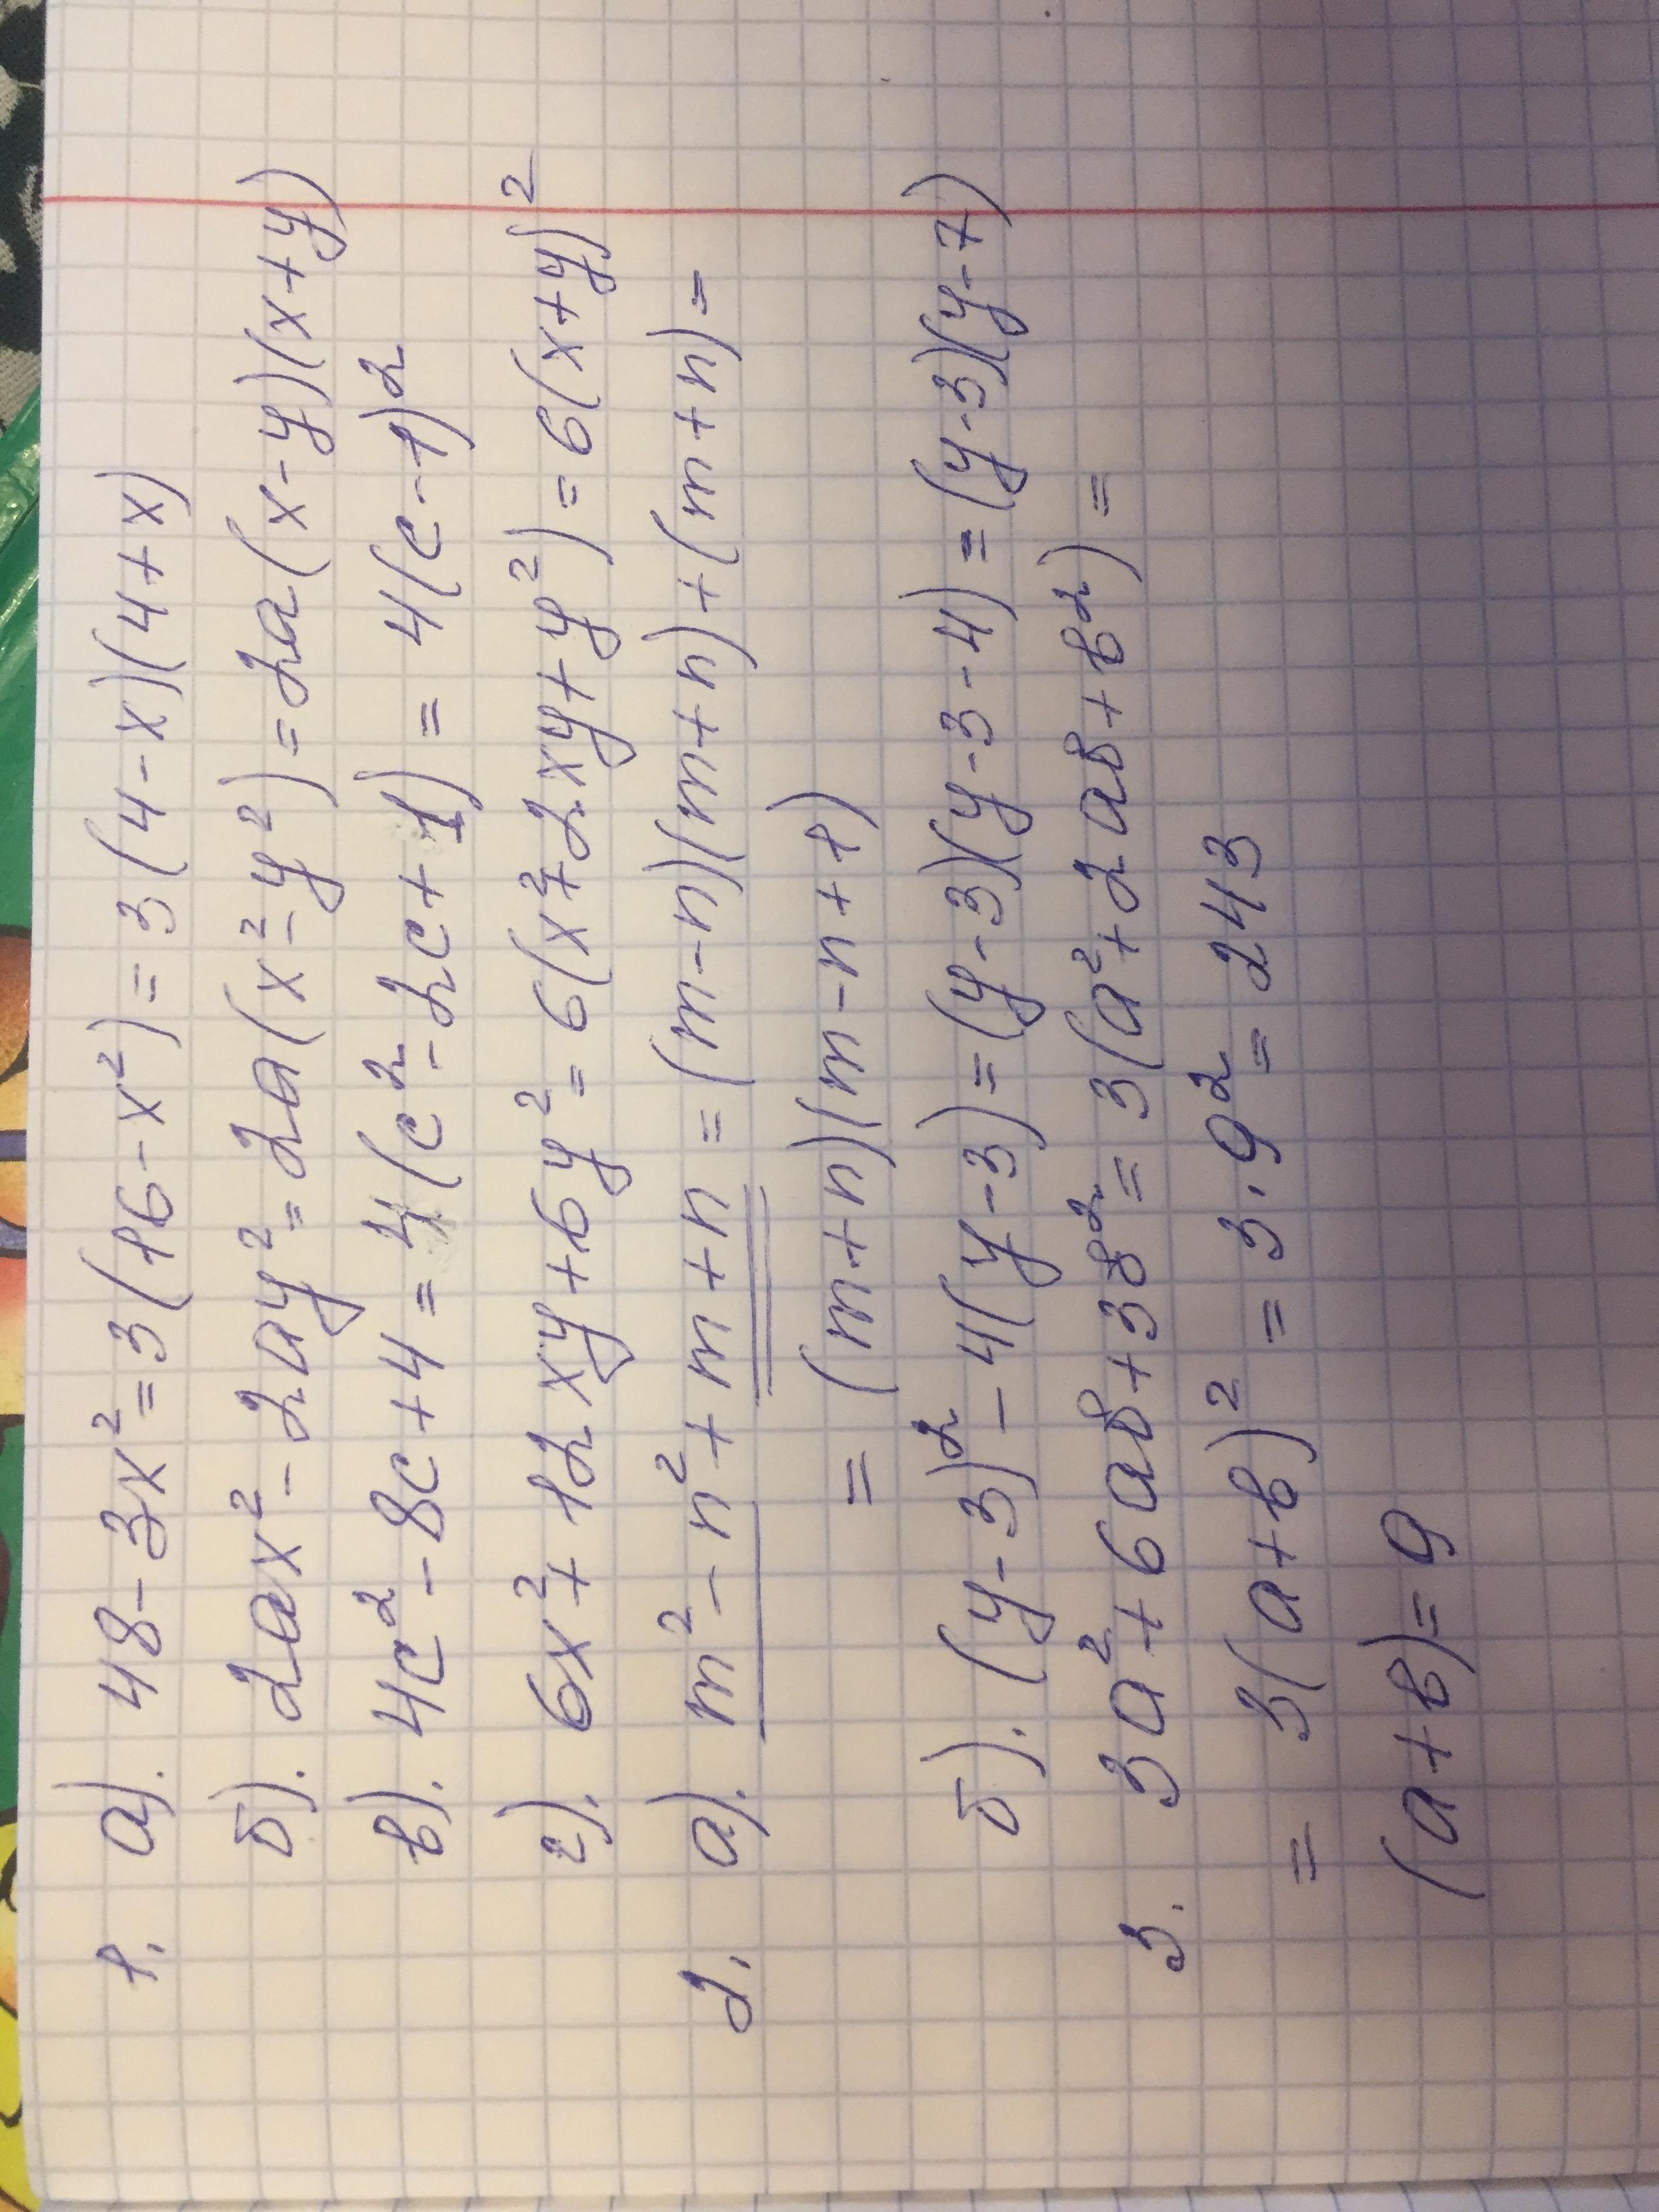 1. а). 48-3x²=3(16-x²)=3(4-x)(4+x)
б). 2ax²-2ay²=2a(x²-y²)=2a(x-y)(x+y)
в). 4c²-8c+4=4(c²-2c+1)=4(c-1)²
г). 6x²+12xy+6y²=6(x²+2xy+y²)=6(x+y)²
2. а). m²-n²+m+n=(m-n)(m+n)+(m+n)=
=(m+n)(m-n+1)
б). (y-3)²-4(y-3)=(y-3)(y-3-4)=(y-3)(y-7)
3. 3a²+6aв+3в²=3(a²+2aв+в²)=
=3(a+в)²=3·9²=243
(a+в)=9